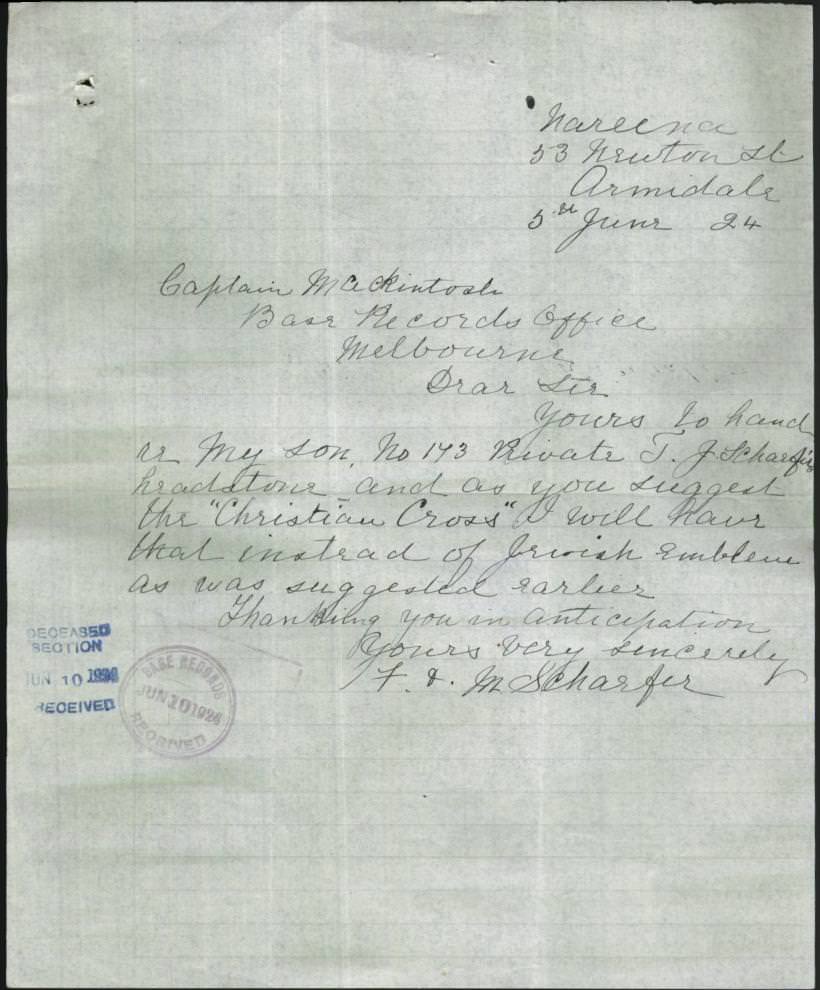 Nareena
53 Newton St
Armidale
5th June 24
Captain Mackintosh
Base Records Office
Melbourne
Dear Sir
Yours to hand
re My son, No 173 Private T. J. Scharfer's
headstone and as you suggest
the "Christian Cross" I will have
that instead of Jewish Emblem
as was suggested earlier
Thanking you in anticipation
Yours very sincerely
F. &. M Scharfer
DECEASED
SECTION
JUN 10 1924
RECEIVED
BASE RECORDS
JUN 10 1924
RECEIVED